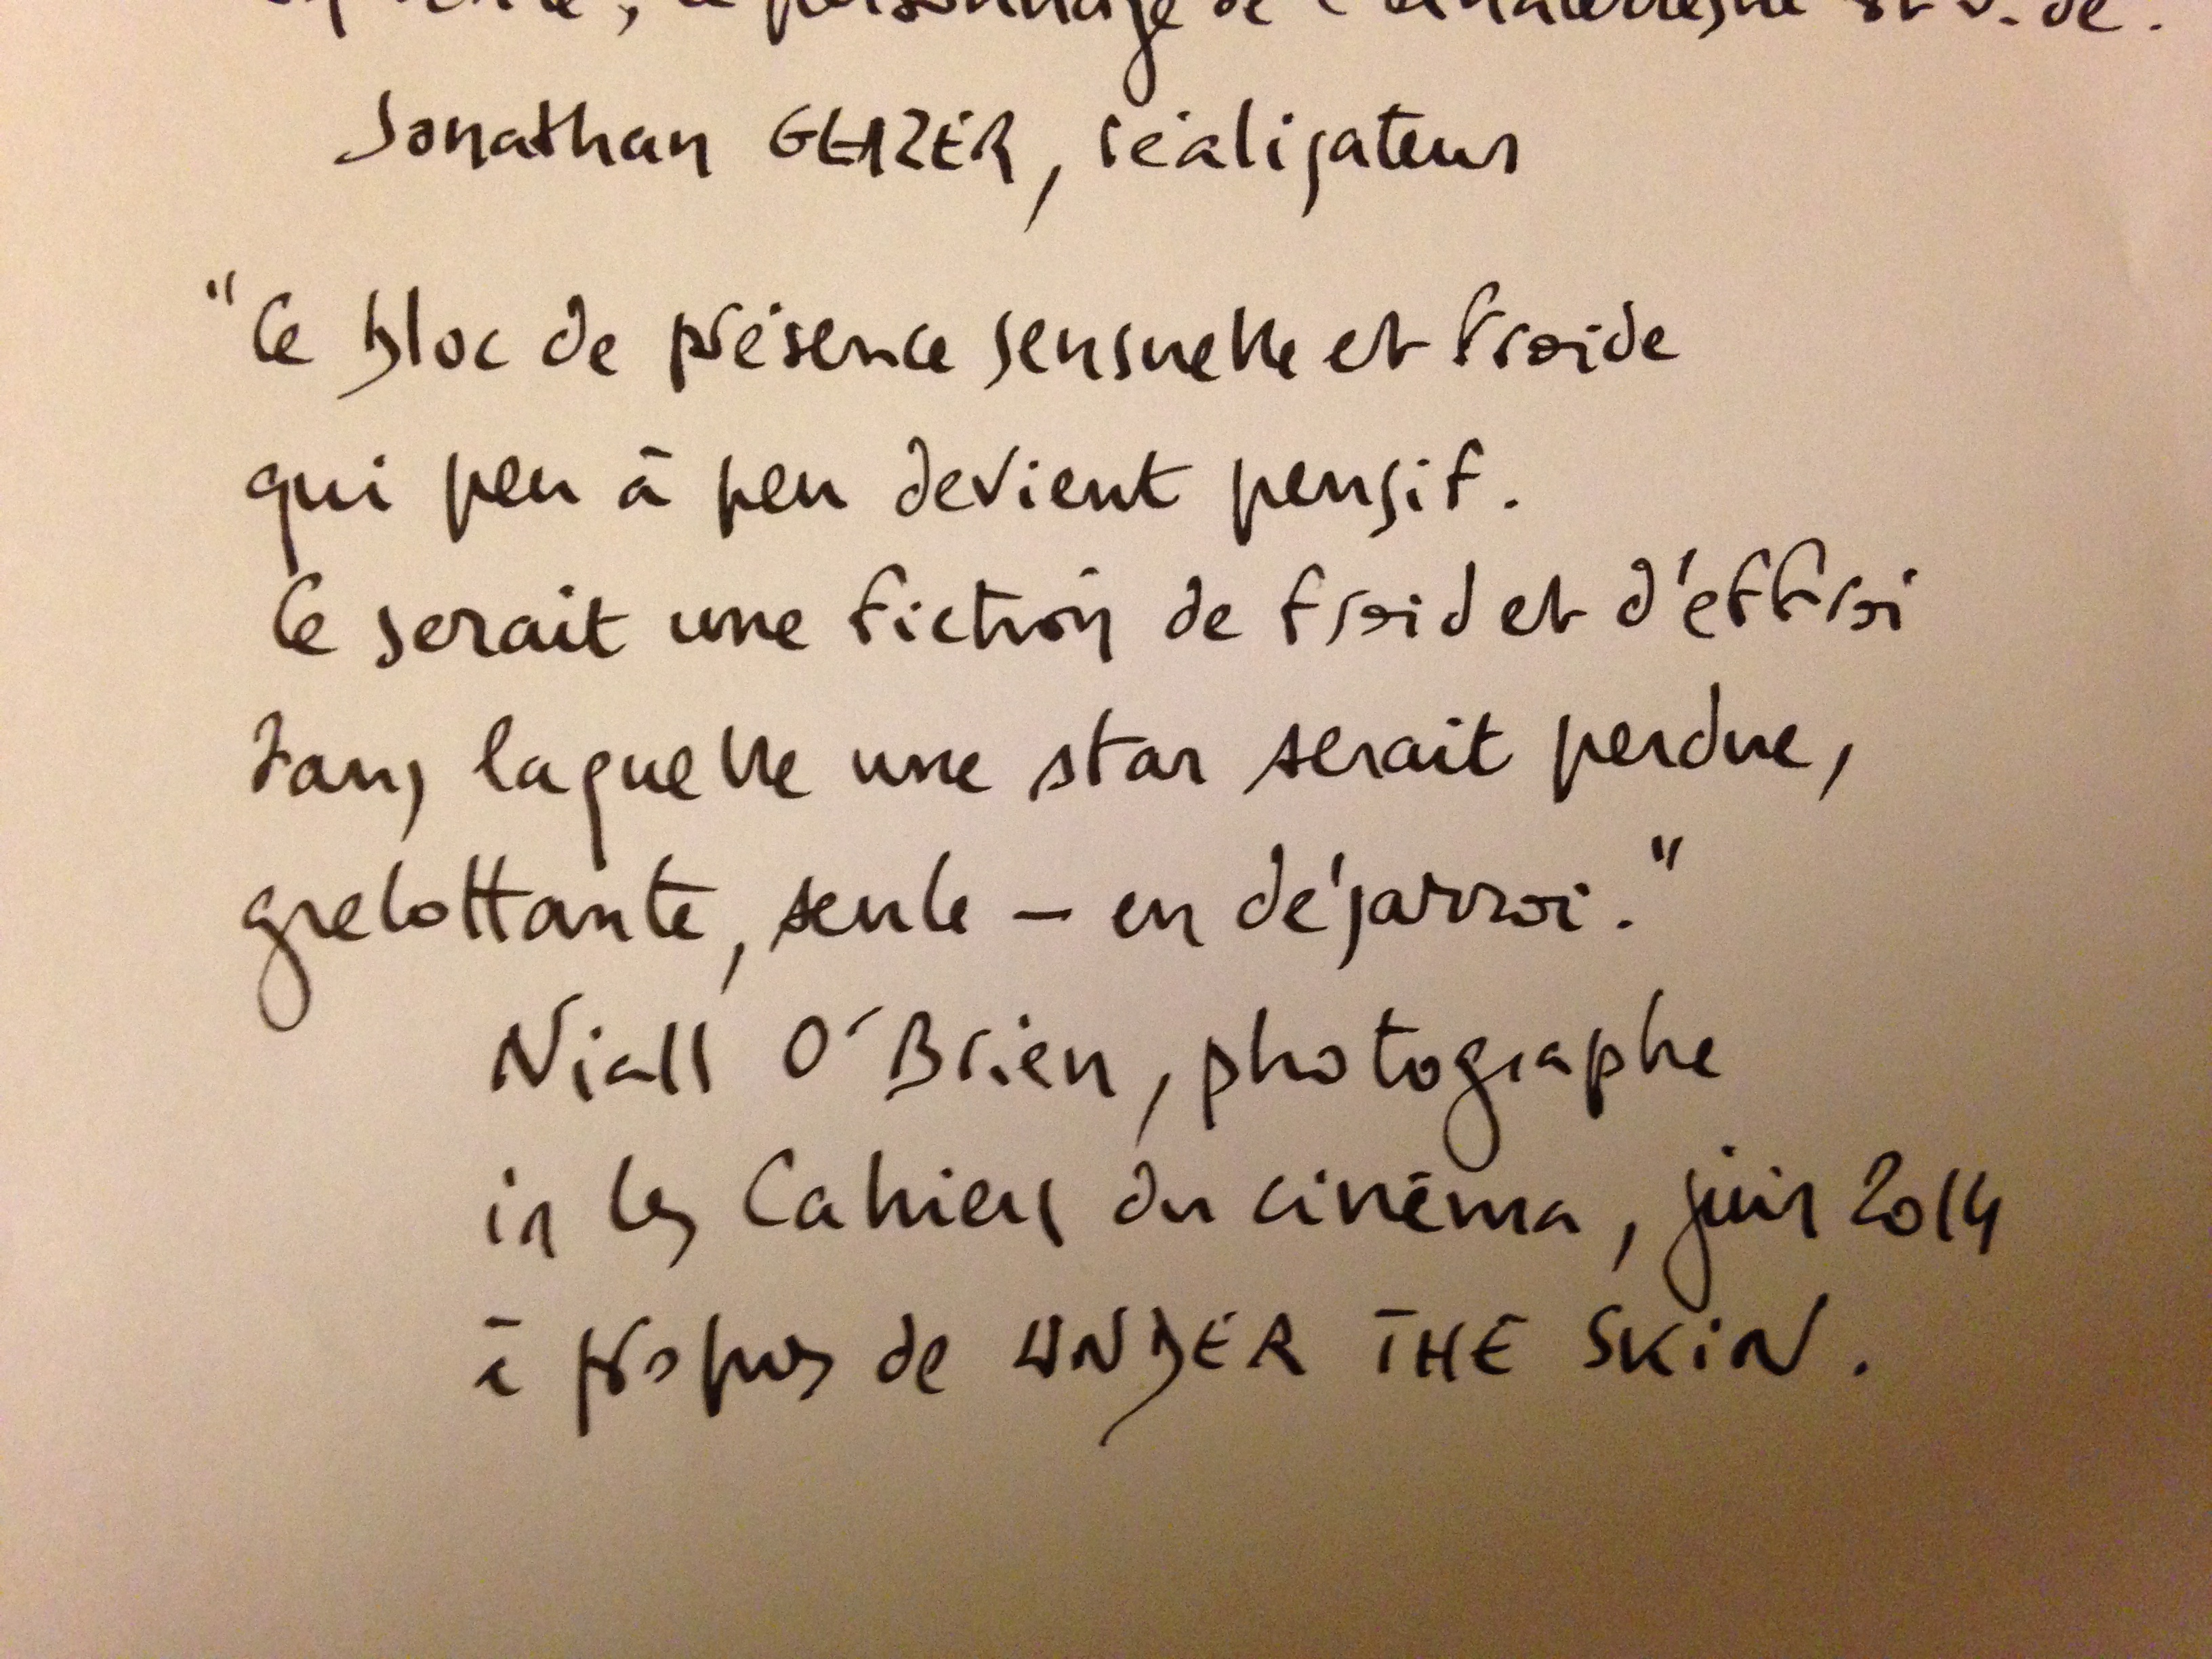 le personnage de l'extraterrestre est vide.
Jonathan GLAZER, réalisateur
"Ce bloc de présence sensuelle et froide
qui peu à peu devient pensif.
Ce serait une fiction de froid et d'effroi
dans laquelle une star serait perdue,
grelottante, seule – en désarroi."
Niall O'Brien, photographe
in les Cahiers du cinéma, juin 2014
à propos de UNDER THE SKIN.